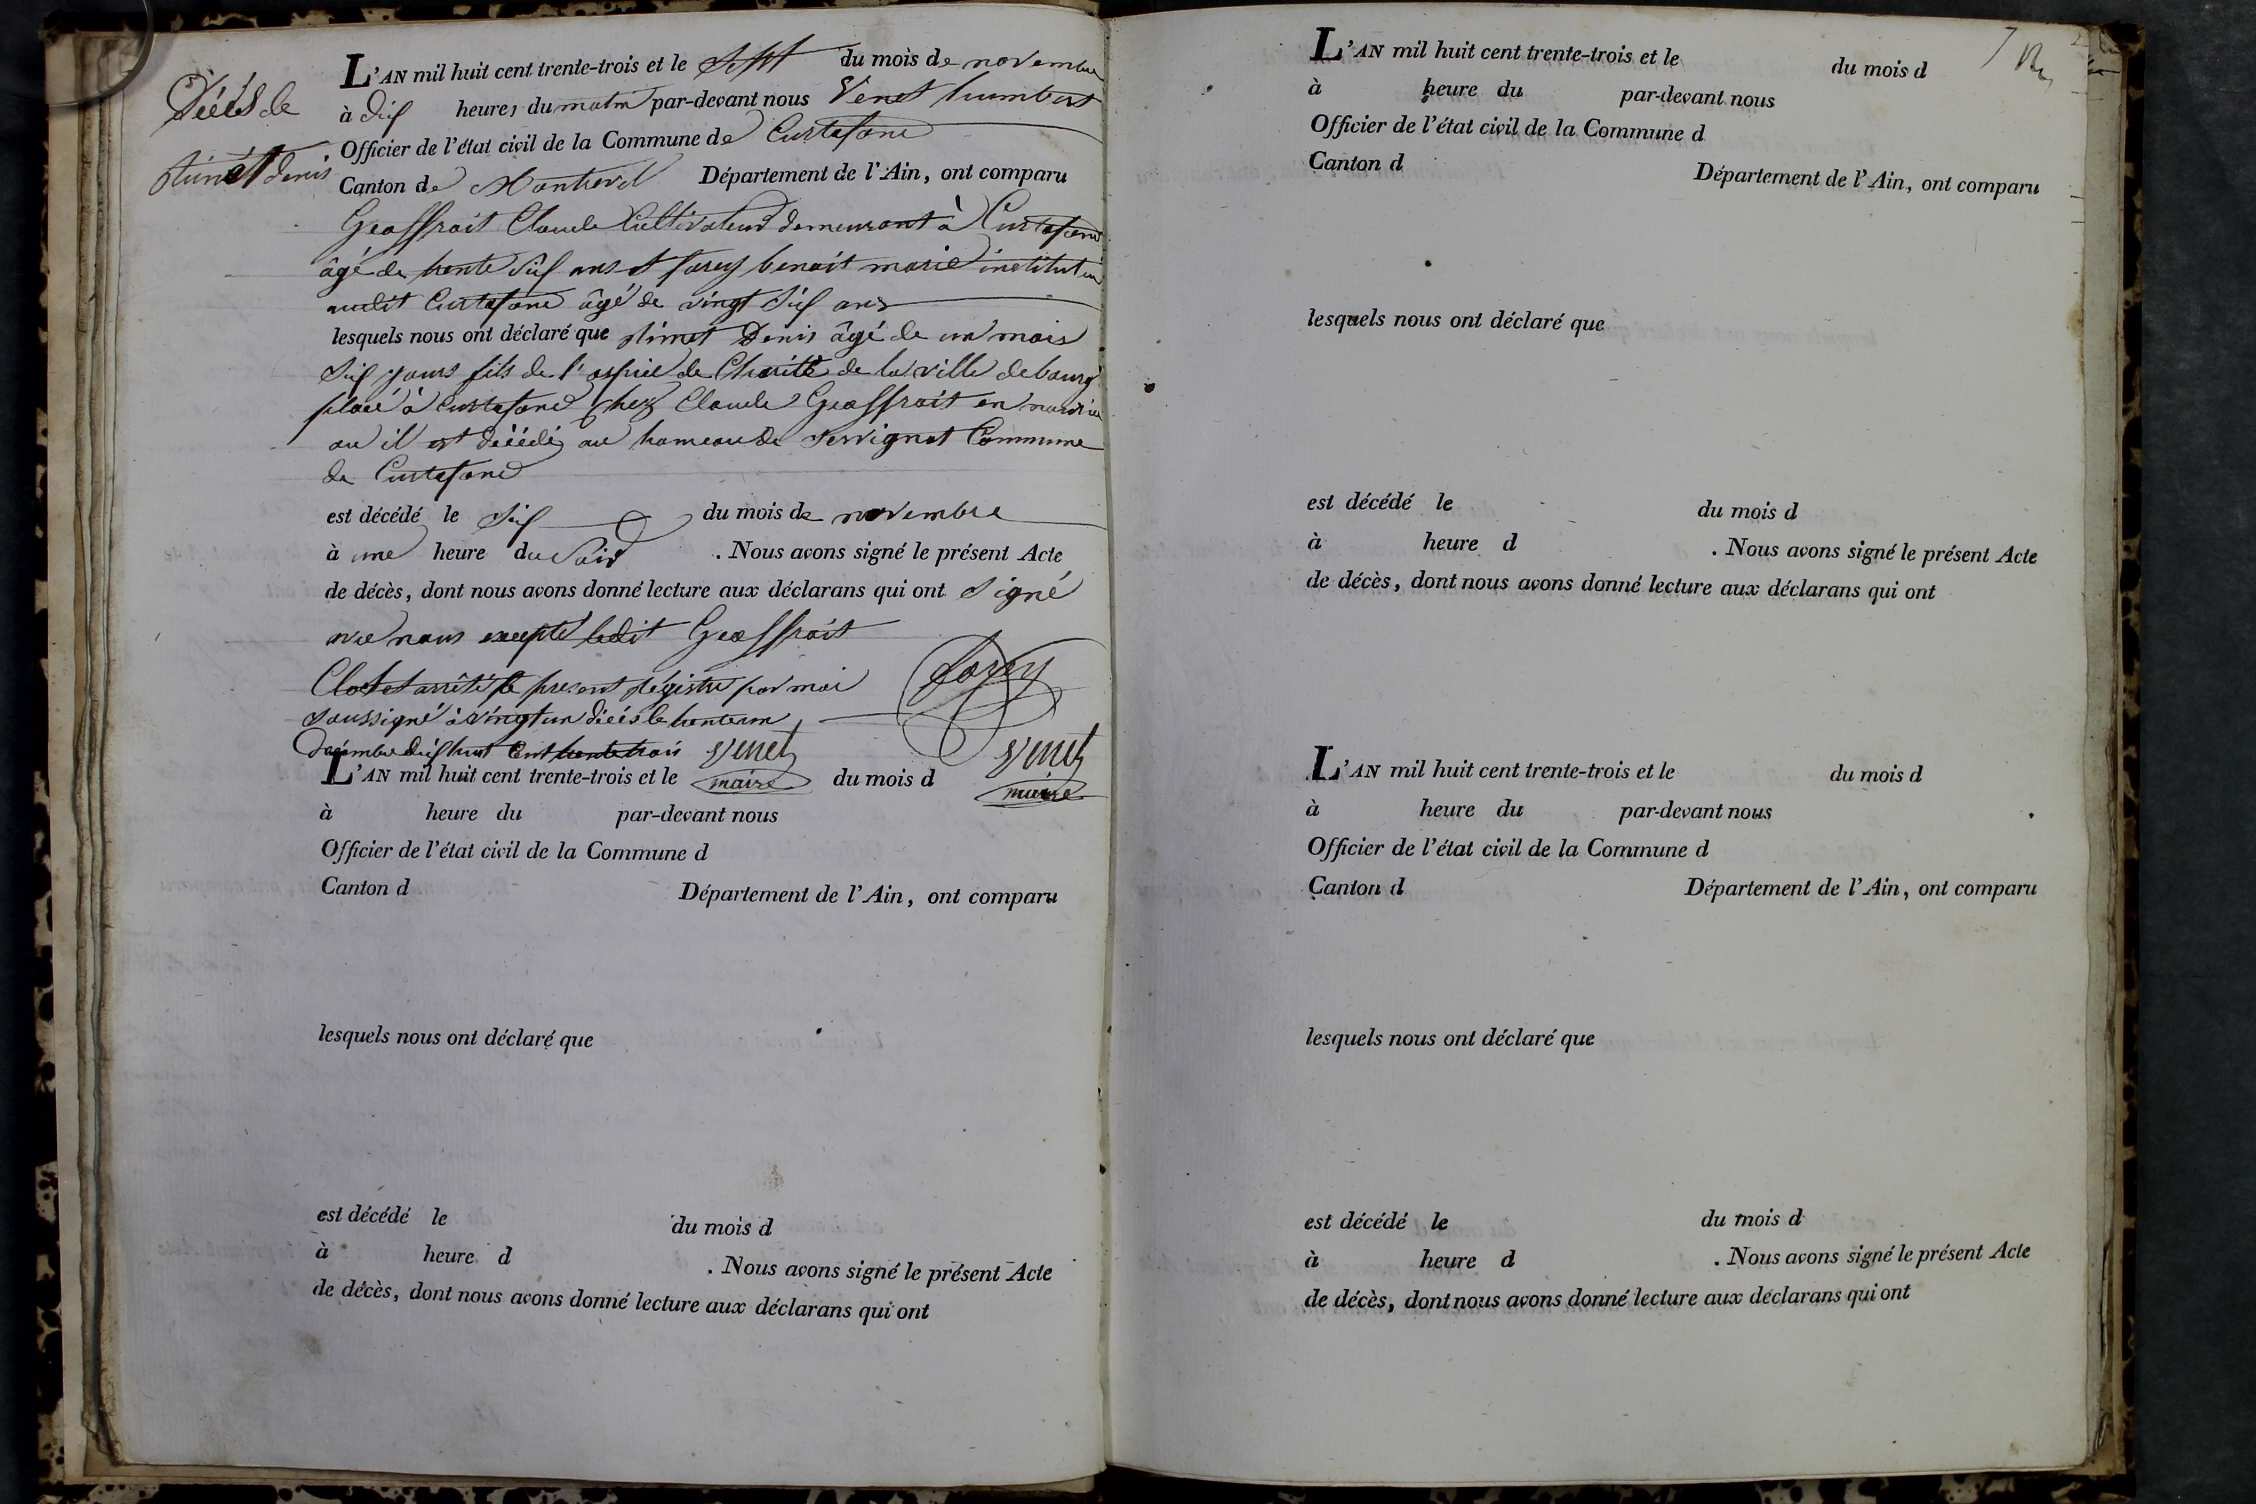 Décés de
denis
L'AN mil huit cent trente-trois et le Sept du mois de novembre
à dix heures du matin par-devant nous Venet humbert
Officier de l'état civil de la Commune de Curtafond
Canton de Montrevel Département de l'Ain, ont comparu
Geoffrait Claude Cultivateur demeurant à Curtafond
âgé de trente Six ans et Sarey benoit marie instituteur
audit Curtafond âgé de vingt Six ans
lesquels nous ont déclaré que Denis âgé de un mois
Six jours fils de l'ospice de Charité de la ville de bourg
placé à Curtafond Chez Claude Geoffrait en nourrice
ou il est décédé au hameau de Servignat Commune
de Curtafond
est décédé le Six du mois de novembre
à une heure du Soir . Nous avons signé le présent Acte
de décès, dont nous avons donné lecture aux déclarans qui ont Signé
avec nous excepté ledit Geoffrait
Clos et arrêté le present régistre par moi
Soussigné à vingt un décés le trente un
décembre dix huit Cent trente trois Venet
maire
Sarey
Venet
maire
L'AN mil huit cent trente-trois et le du mois d
à heure du par-devant nous
Officier de l'état civil de la Commune d
Canton d Département de l'Ain, ont comparu
lesquels nous ont déclaré que
est décédé le du mois d
à heure d . Nous avons signé le présent Acte
de décès, dont nous avons donné lecture aux déclarans qui ont
L'AN mil huit cent trente-trois et le du mois d
à heure du par-devant nous
Officier de l'état civil de la Commune d
Canton d Département de l'Ain, ont comparu
lesquels nous ont déclaré que
est décédé le du mois d
à heure d . Nous avons signé le présent Acte
de décès, dont nous avons donné lecture aux déclarans qui ont
L'AN mil huit cent trente-trois et le du mois d
à heure du par-devant nous
Officier de l'état civil de la Commune d
Canton d Département de l'Ain, ont comparu
lesquels nous ont déclaré que
est décédé le du mois d
à heure d . Nous avons signé le présent Acte
de décès, dont nous avons donné lecture aux déclarans qui ont